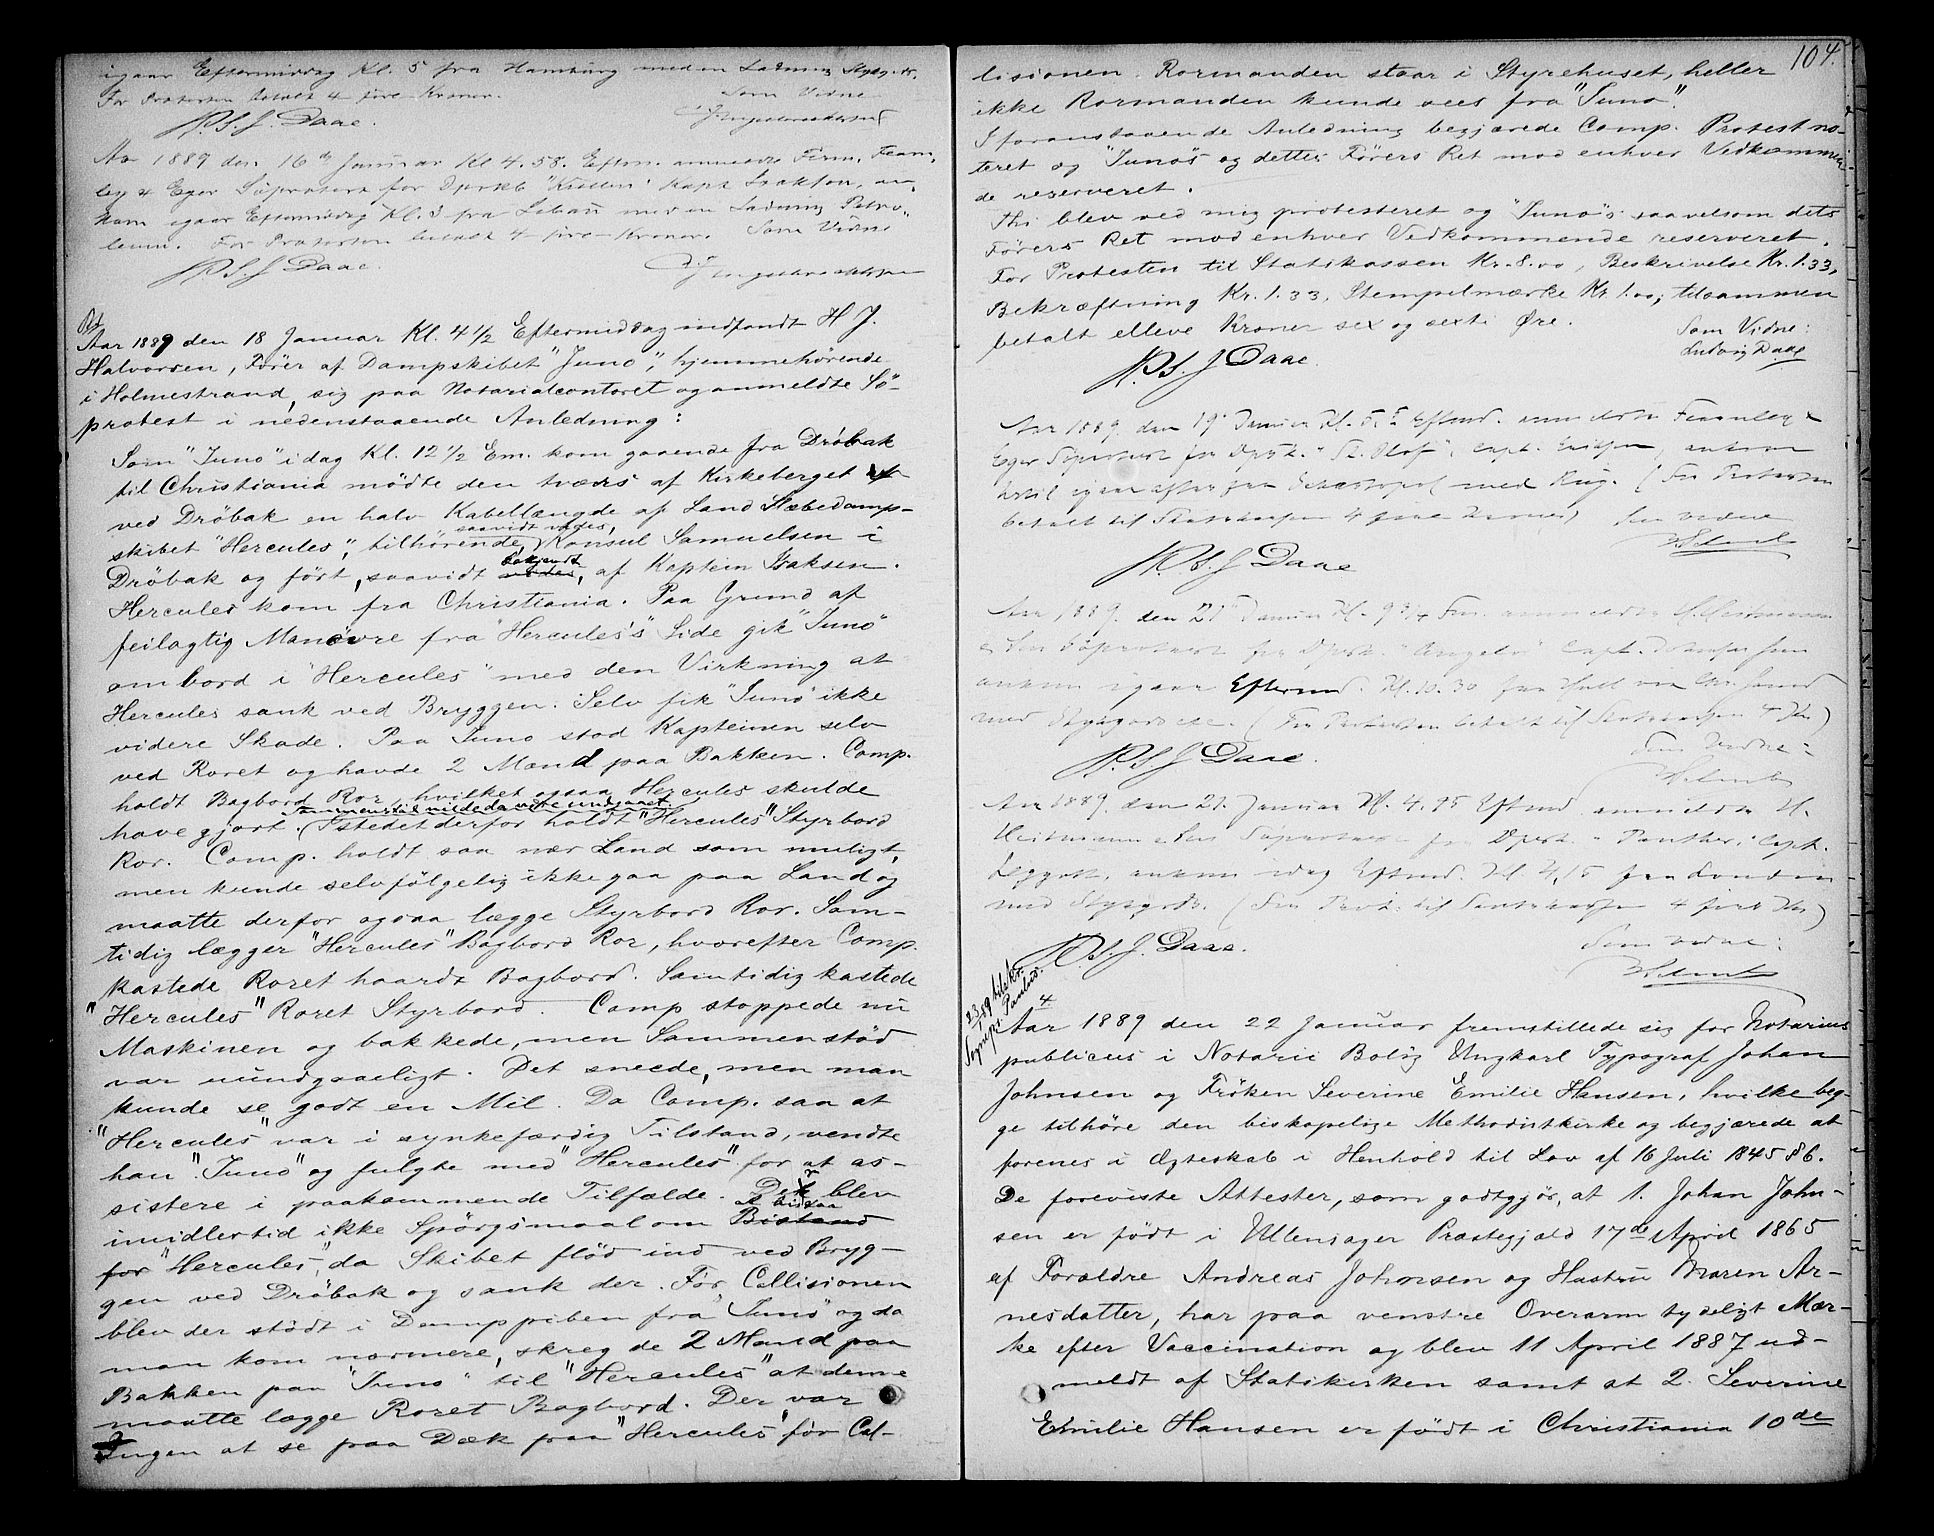 igaar Eftermiddag Kl. 5 fra Hamburg med en Ladning Stykg.
For Protesten betalt 4 - fire - Kroner. Som Vidne
N.S.J. Daae.
Aar 1889 den 16de Januar Kl 4.58. Eftm. anmeldte Firm. Fearn-
ley & Eger Söprotest for Dpskb Kapt Isakson, an-
kom igaar Eftermiddag Kl. 3 fra Libau med en Ladning Petro-
leum. For Protesten betalt 4 - fire - Kroner. Som Vidne
N.S.J Daae.
Aar 1889 den 18 Januar Kl. 4 1/2 Eftermiddag indfandt H J.
Halvorsen, Förer af Dampskibet "Juno", hjemmehörende
i Holmestrand, sig paa Notarialcontoret og anmeldte Sö-
protest i nedenstaaende Anledning:
Som "Juno" idag Kl. 12 1/2 Em. kom gaaende fra Dröbak
til Christiania mödte den tværs af Kirkeberget
ved Dröbak en halv Kabellængde af Land Slæbedamp-
saavidt vides,
skibet "Hercules", tilhörende Konsul Samuelsen i
bekjendt
Dröbak og fört, saavidt vides, af Kaptein Isaksen.
Hercules kom fra Christiania. Paa Grund af
feilagtig Manövre fra "Hercules's" Side gik "Juno"
ombord i "Hercules" med den Virkning at
Hercules sank ved Bryggen. Selv fik "Juno" ikke
videre Skade. Paa Juno stod Kapteinen selv
ved Roret og havde 2 Mand paa Bakken. Comp.
holdt Bagbord Ror, hvilket ogsaa Hercules skulde
Sammenstöd vilde da være undgaaet
have gjort. (Istedetderfor holdt "Hercules" Styrbord
Ror. Comp. holdt saa nær Land som muligt,
men kunde selvfölgelig ikke gaa paa Land og
maatte derfor ogsaa lægge Styrbord Ror. Sam-
tidig lægger "Hercules" Bagbord Ror, hvorefter Comp.
kastede Roret haardt Bagbord. Samtidig kastede
"Hercules" Roret Styrbord. Comp stoppede nu
Maskinen og bakkede, men Sammenstöd
var uundgaaeligt. Det sneede, men man
kunde se godt en Mil. Da Comp. saa at
"Hercules" var i synkefærdig Tilstand, vendte
han "Juno" og fulgte med "Hercules" for at as-
sistere i paakommende Tilfælde. Der blev
at bistaa
imidlertid ikke Spörgsmaal om Bistand
for "Hercules", da Skibet flöd ind ved Bryg-
gen ved Dröbak og sank der.För Collisionen
blev der stödt i Damppiben fra "Juno" og da
man kom nærmere, skreg de 2 Mand paa
Bakken paa "Juno" til "Hercules" at denne
maatte lægge Roret Bagbord. Der var
Ingen at se paa Dæk paa "Hercules" för Col-
104.
lisionen. Rormanden staar i Styrehuset, heller
ikke Rormanden kunde sees fra "Juno".
I foranstaaende Anledning begjærede Comp. Protest no-
teret og "Juno's" og dettes Förers Ret mod enhver Vedkommen-
de reserveret.
Thi blev ved mig protesteret og "Juno's" saavelsom dets
Förers Ret mod enhver Vedkommende reserveret.
For Protesten til Statskassen Kr. 8.00, Beskrivelse Kr. 1.33,
Bekræftning Kr. 1.33, Stempelmærke Kr 1.00; tilsammen
betalt elleve Kroner sex og sexti Öre. Som Vidne:
Ludvig Daae
N.S.J Daae.
Aar 1889. den 19 Januar Kl. Eftmd. anmeldte Fearnley &
Eger Söprotest for Dpsk. "St. Olof", Capt. ankom
hertil igaar aftes fra Sebastopol med Rug. (For Protesten
betalt til Statskassen 4 fire Kroner) Som Vidne
N.S.J Daae
Aar 1889. den 21 Januar Kl. 9 3/4 Fm. anmeldte H. Heitmann
& Sön Söprotest for Dpsk. "Angelo" Capt.
ankom igaar Eftermd. Kl. 10.30 fra Hull via Chr.sand
med Stykgods etc. (For Protesten betalt til Statskassen 4 Kr)
Som Vidne:
N.S.J Daae.
Aar 1889. den 21. Januar Kl. 4.95 Eftmd anmeldte H.
Heitmann & Sön Söprotest for Dpsk. "Panther", Capt.
Leggott, ankom idag Eftmd. Kl 4,15 fra London
med Stykgods. (For Prot. til Statskassen 4 fire Kr)
Som Vidne:
N.S.J. Daae.
Aar 1889 den 22 Januar fremstillede sig for Notarius
publicus i Notarii Bolig Ungkarl Typograf Johan
Johnsen og Fröken Severine Emilie Hansen, hvilke beg-
ge tilhöre den biskopelige Methodistkirke og begjærede at
forenes i Ægteskab i Henhold til Lov af 16 Juli 1845 § 6.
De foreviste Attester, som godtgjör, at 1. Johan John-
sen er födt i Ullensager Præstegjæld 17de April 1865
af Forældre Andreas Johnsen og Hustru Maren Ar-
nesdatter, har paa venstre Overarm tydeligt Mær-
ke efter Vaccination og blev 11 April 1887 ud-
meldt af Statskirken samt at 2. Severine
Emilie Hansen er födt i Christiania 10de